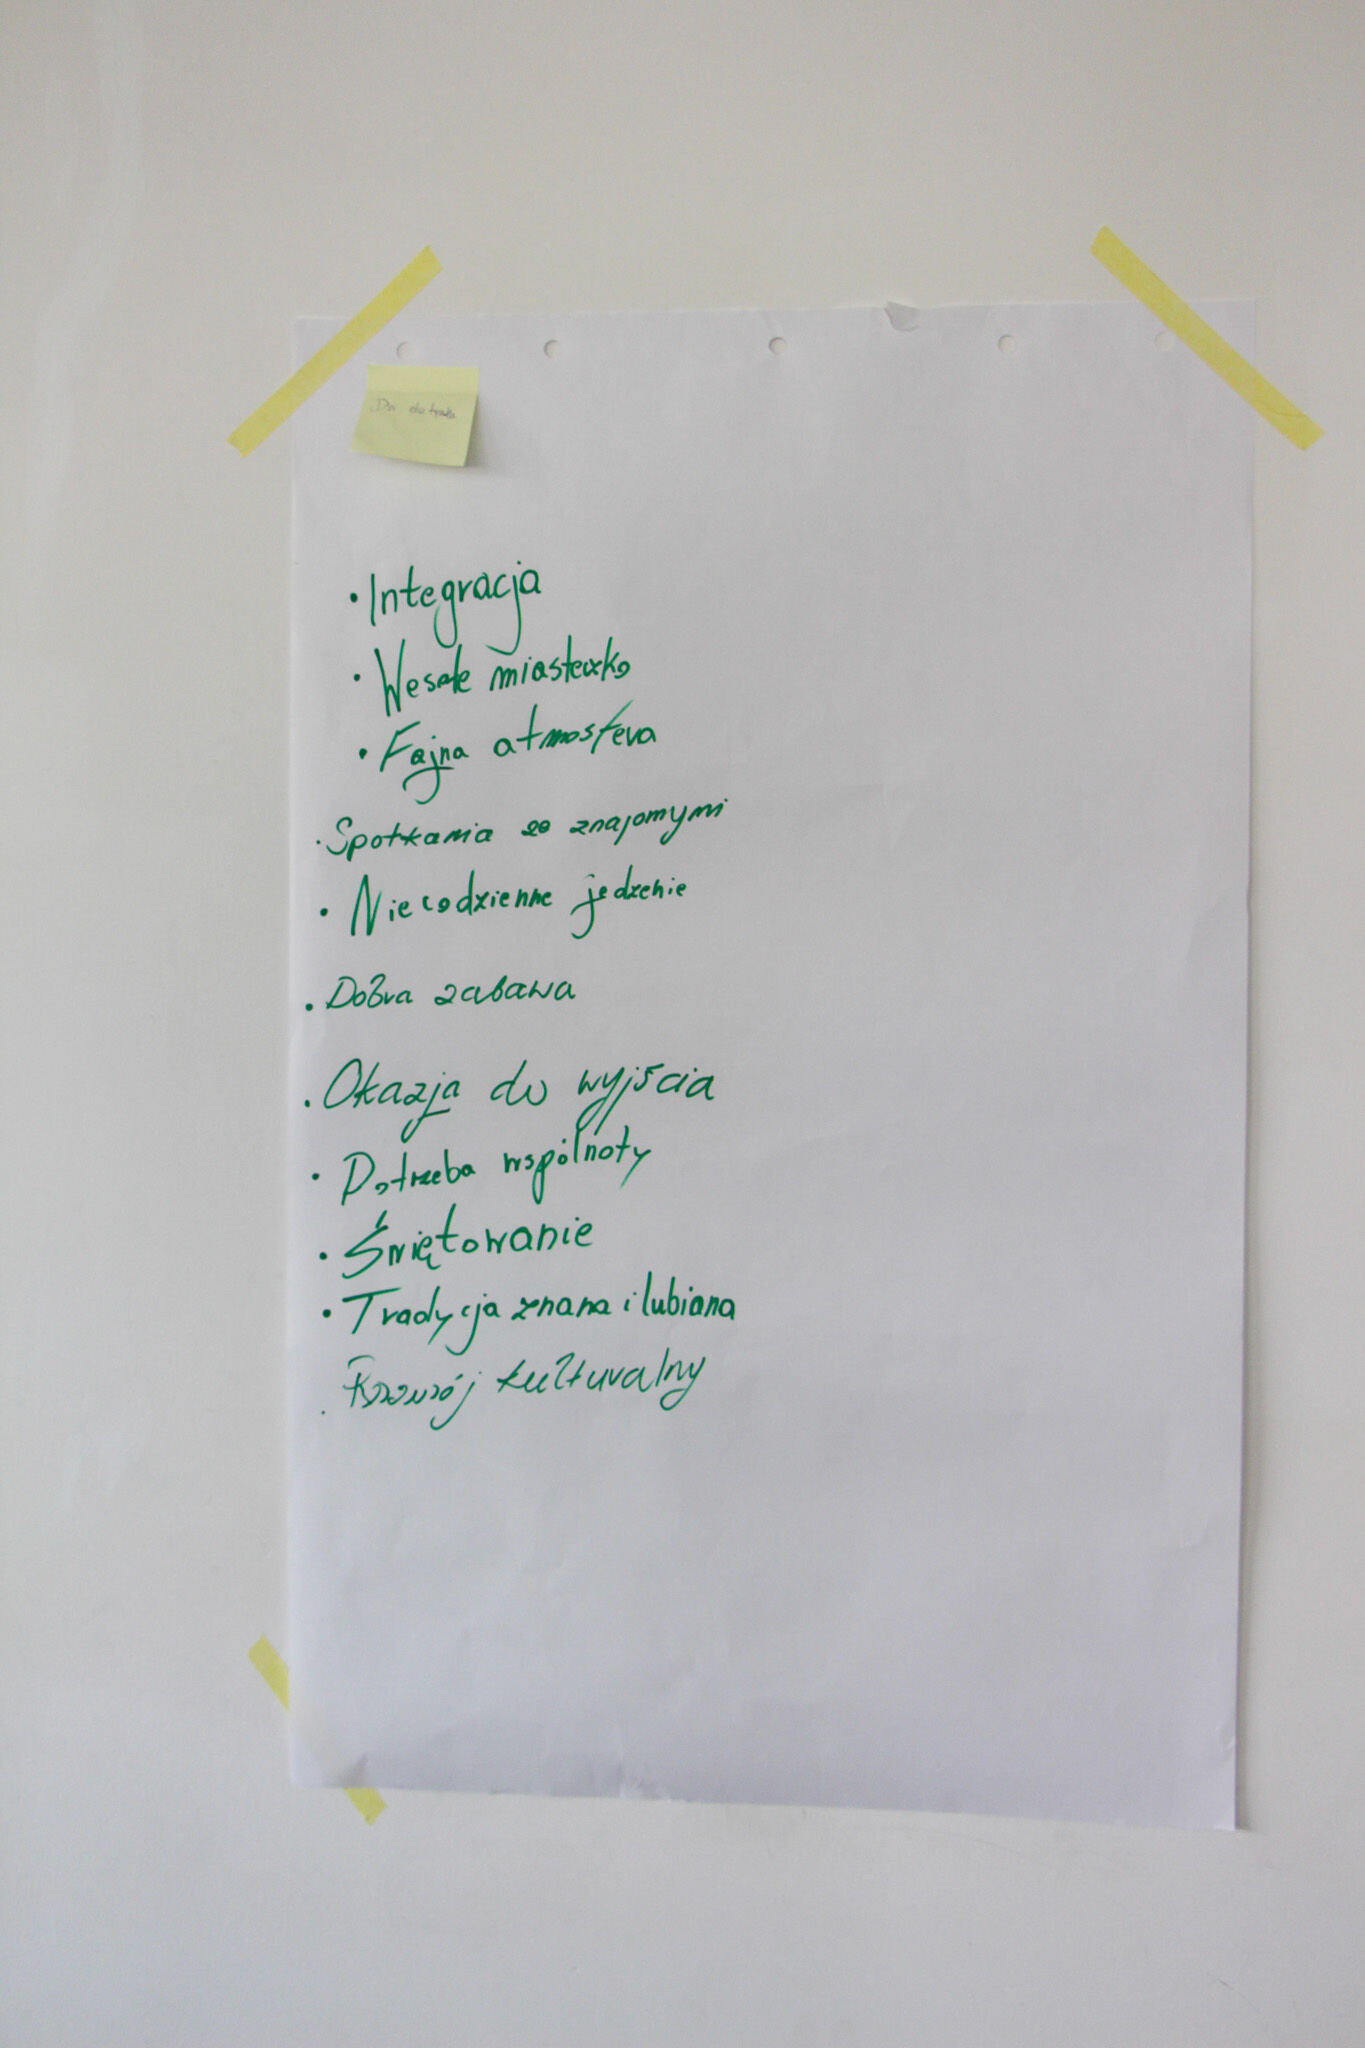 • Integracja
• Wesołe miasteczko
• Fajna atmosfera
• Spotkania ze znajomymi
• Niecodzienne jedzenie
• Dobra zabawa
• Okazja do wyjścia
• Potrzeba wspólnoty
• Świętowanie
• Tradycja znana i lubiana
• Rozwój kulturalny